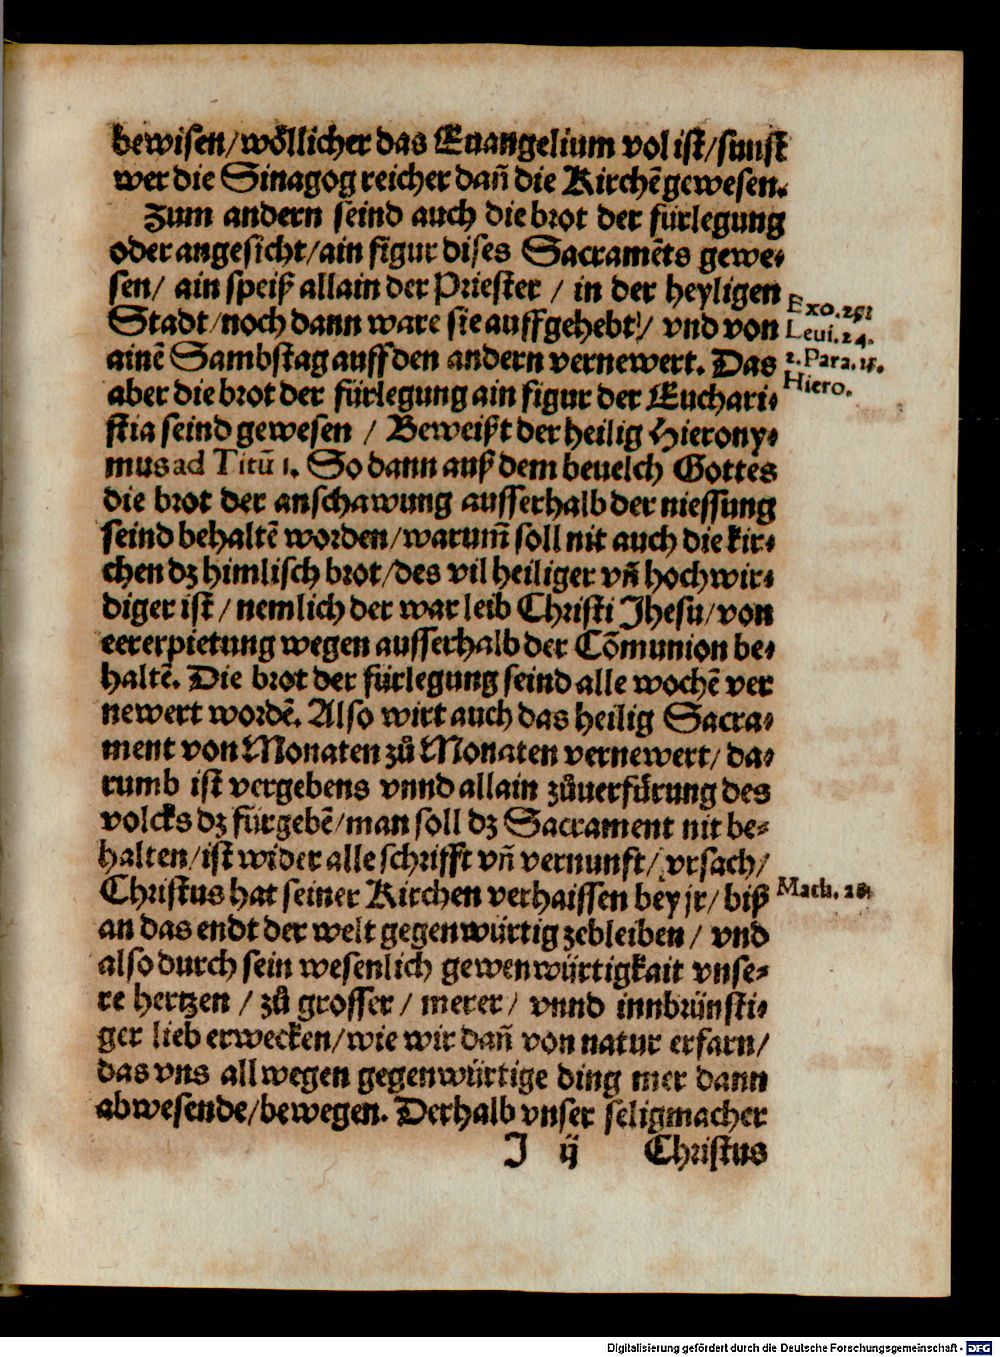 bewisen/wöllicher das Euangelium vol ist/sunst
wer die Sinagog reicher dañ die Kirchē gewesen.
Zum andern seind auch die brot der fürlegung
oder angesicht/ain figur dises Sacramēts gewe-
sen/ ain speiß allain der Priester / in der heyligen
Exo.25.
Stadt/noch dann ware sie auffgehebt/ vnd von
Leui.24.
ainē Sambstag auff den andern vernewert. Das
2.Para.15.
aber die brot der fürlegung ain figur der Euchari-
Hiero.
stia seind gewesen / Beweißt der heilig Hierony-
mus ad Titū 1. So dann auß dem beuelch Gottes
die brot der anschawung ausserhalb der niessung
seind behaltē worden/warum̃ soll nit auch die kir-
chen dz himlisch brot/des vil heiliger vñ hochwir-
diger ist/ nemlich der war leib Christi Jhesu/von
eererpietung wegen ausserhalb der Cōmunion be-
haltē. Die brot der fürlegung seind alle wochē ver
newert wordē. Also wirt auch das heilig Sacra-
ment von Monaten zů Monaten vernewert/ da-
rumb ist vergebens vnnd allain zůuerfürung des
volcks dz fürgebē/man soll dz Sacrament nit be-
halten/ist wider alle schrifft vñ vernunft/ vrsach/
Christus hat seiner Kirchen verhaissen bey jr/ biß
Math. 28.
an das endt der welt gegenwürtig zebleiben/ vnd
also durch sein wesenlich gewenwürtigkait vnse-
re hertzen / zů grosser/ merer/ vnnd innbrünsti-
ger lieb erwecken/wie wir dañ von natur erfarn/
das vns allwegen gegenwürtige ding mer dann
abwesende/bewegen. Derhalb vnser seligmacher
J ij Christus
Digitalisierung gefördert durch die Deutsche Forschungsgemeinschaft - DFG